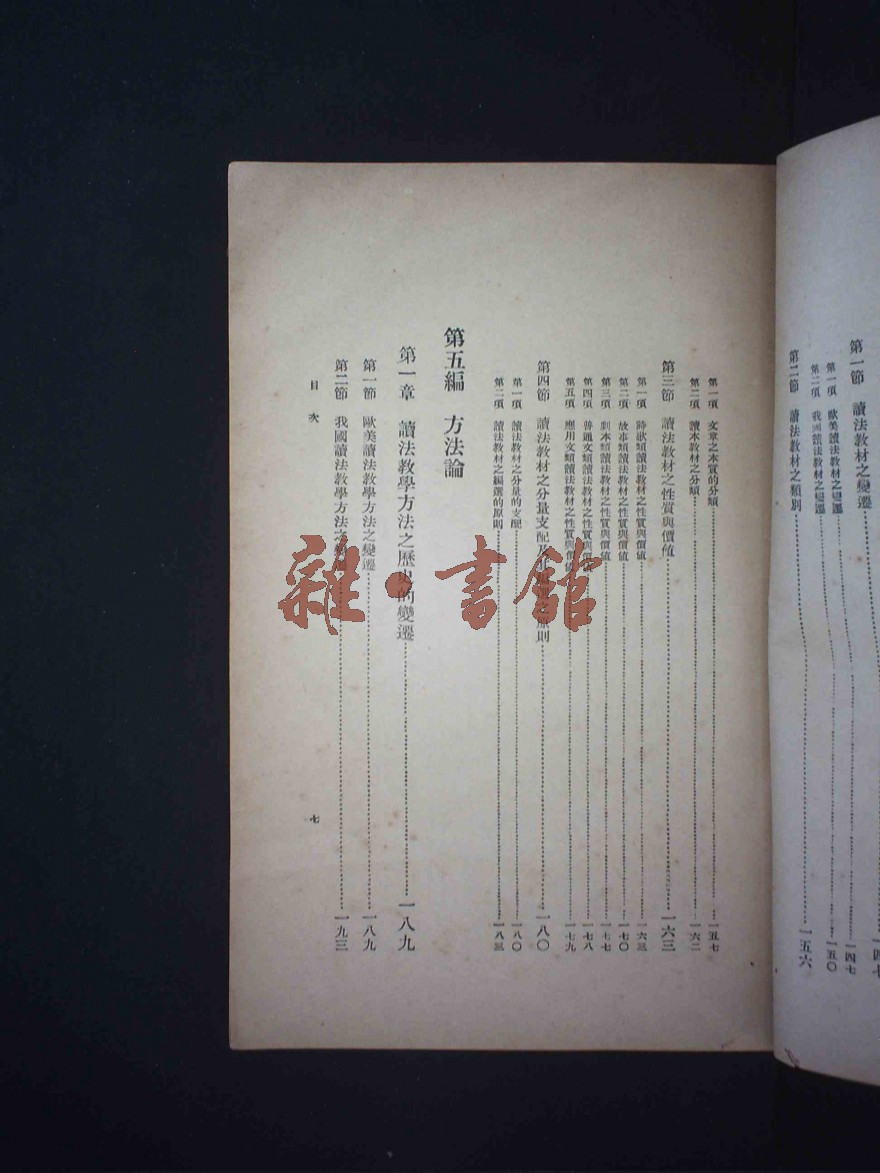 第一節 讀法教材之變遷 一四七
第一項 歐美讀法教材之變遷 一四七
第二項 我國讀法教材之變遷 一五〇
第二節 讀法教材之類別 一五六
第一項 文章之本質的分類 一五七
第二項 讀本教材之分類 一六二
第三節 讀法教材之性質與價值 一六三
第一項 詩歌類讀法教材之性質與價值 一六三
第二項 故事類讀法教材之性質與價值 一七〇
第三項 劇本類讀法教材之性質與價值 一七七
第四項 普通文類讀法教材之性質與價值 一七八
第五項 應用文類讀法教材之性質與價值 一七九
第四節 讀法教材之分量支配及其 之原則 一八〇
第一項 讀法教材之分量的支配 一八〇
第二項 讀法教材之編選的原則 一八三
第五編 方法論
第一章 讀法教學方法之歷史的變遷 一八九
第一節 歐美讀法教學方法之變遷 一八九
第二節 我國讀法教學方法之 一九三
目次
七
雜·書館